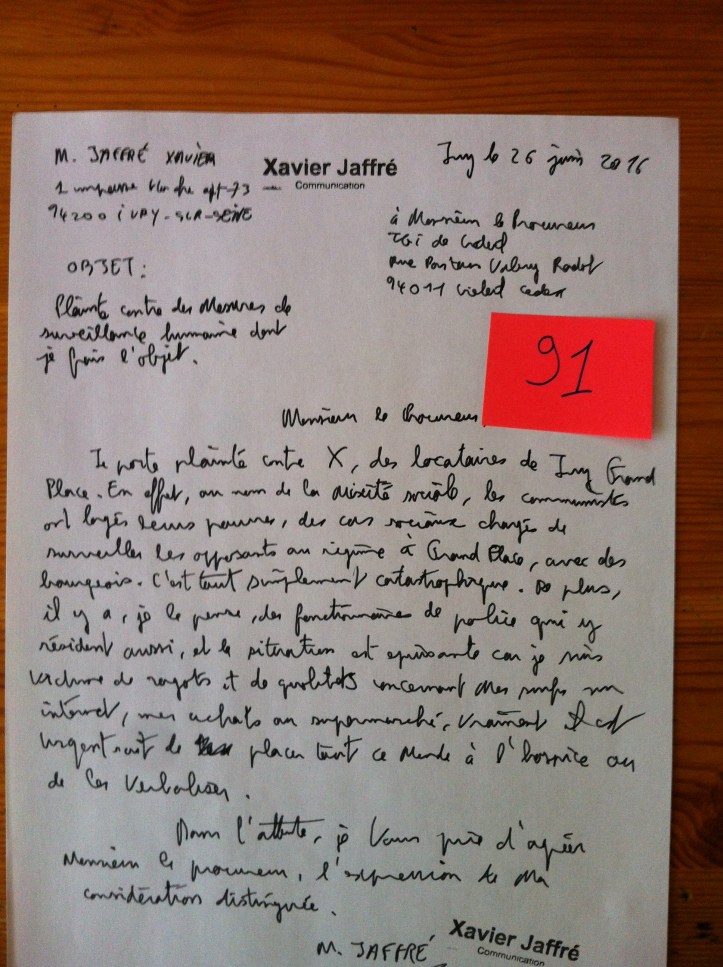 M. JAFFRÉ XAVIER
Xavier Jaffré
Communication
Ivry le 26 juin 2016
1 impasse apt 73
94200 IVRY-SUR-SEINE
à Monsieur le Procureur
TGI de Créteil
Rue Pasteur Valery Radot
94011 Créteil Cedex
OBJET:
Plainte contre des Mesures de
surveillance humaine dont
je fais l'objet.
91
Monsieur le Procureur,
Je porte plainte contre X, des locataires de Ivry Grand
Place. En effet, au nom de la mixité sociale, les communistes
ont logés leurs pauvres, des cas sociaux chargés de
surveiller les opposants au régime à Grand Place, avec des
bourgeois. C'est tout simplement catastrophique. De plus,
il y a, je le pense, des fonctionnaires de police qui y
résident aussi, et la situation est épuisante car je suis
victime de ragots et de quolibets concernant mes surfs sur
internet, mes achats au supermarché, vraiment Il est
urgent soit de placer tout ce Monde à l'hospice ou
de les Verbaliser.
Dans l'attente, je Vous prie d'agréer
Monsieur le procureur, l'expression de Ma
considération distinguée.
M. JAFFRÉ
Xavier Jaffré
Communication